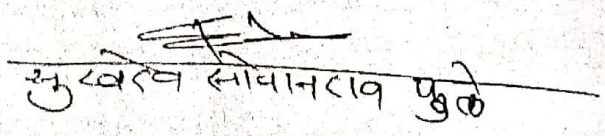 सुखदेव सोपानराव फुले